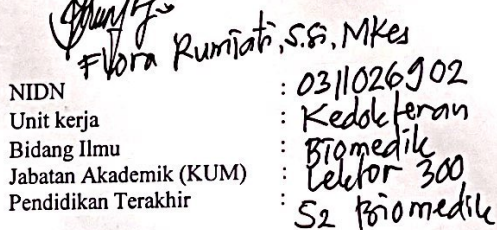 Flora Rumiati, S.Si, MKes
NIDN : 0311026902
Unit kerja : Kedokteran
Bidang Ilmu : Biomedik
Jabatan Akademik (KUM) : Lektor 300
Pendidikan Terakhir : S2 Biomedik